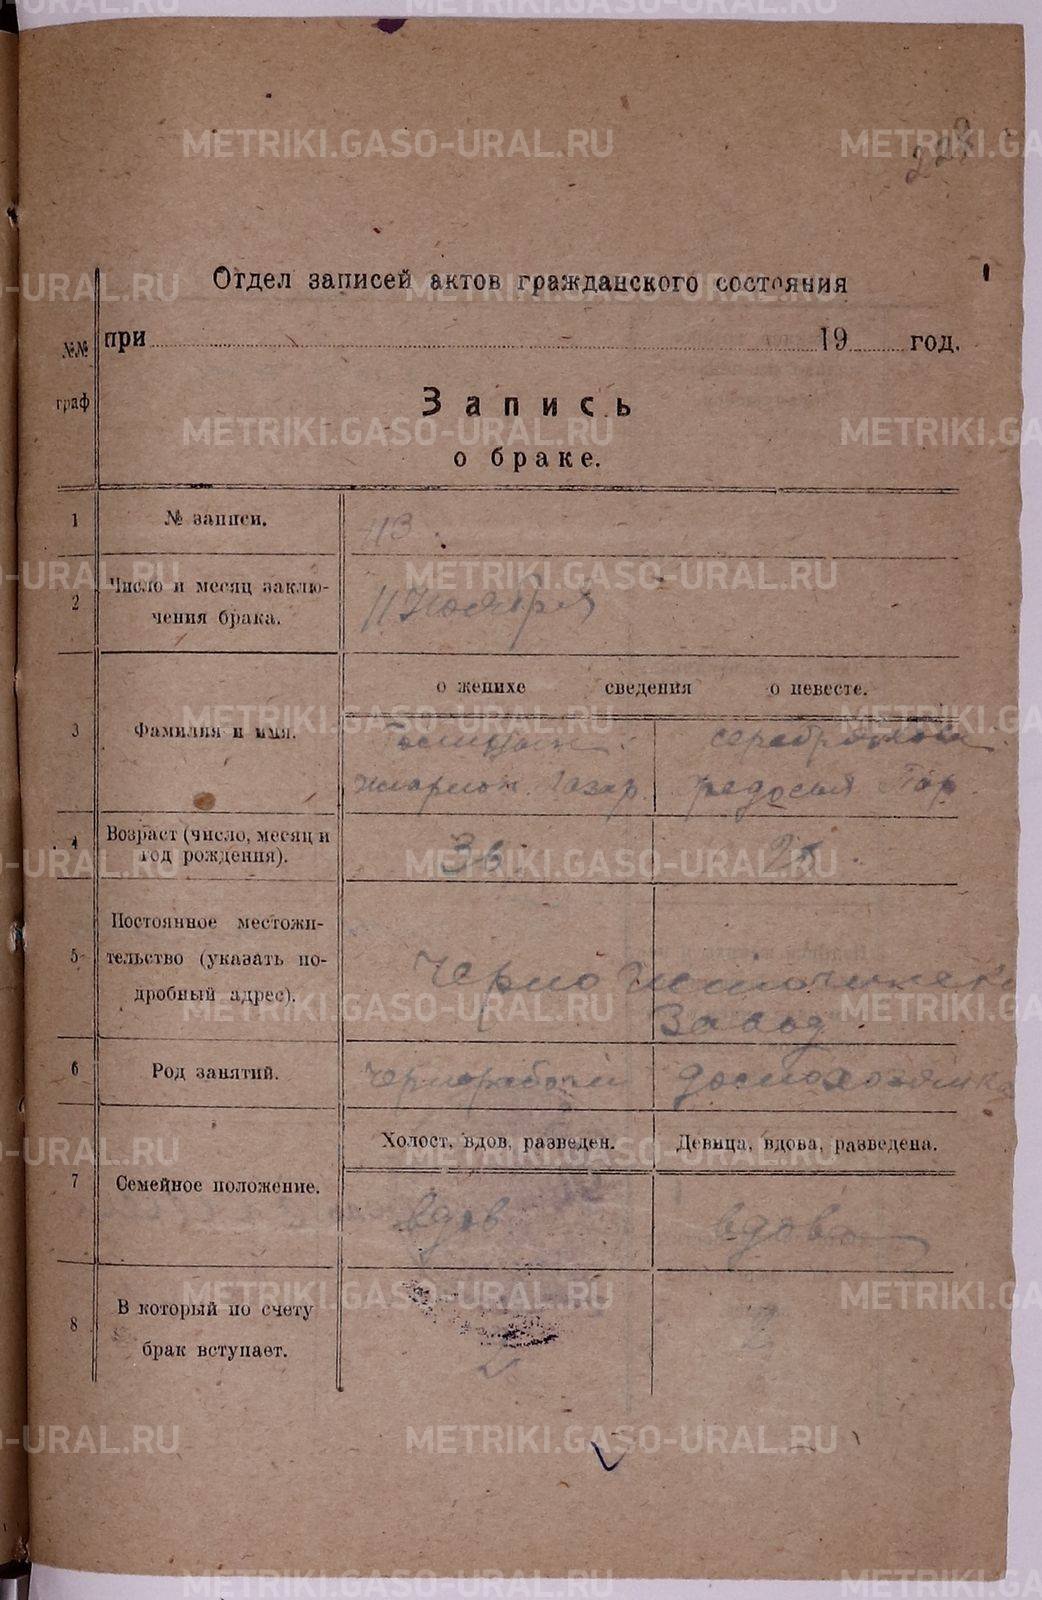 METRIKI.GASO-URAL.RU
228
Отдел записей актов гражданского состояния
при 19 год.
№№ граф
Запись
о браке.
1 № записи. 113.
2 Число и месяц заключения брака. 11 Ноября
о женихе сведения о невесте.
3 Фамилия и имя.
4 Возраст (число, месяц и год рождения).
5 Постоянное местожительство (указать подробный адрес). Черно Источинск
Завод
6 Род занятий. Чернорабочий домохозяйка
Холост, вдов, разведен. Девица, вдова, разведена.
7 Семейное положение. вдов вдова
8 В который по счету брак вступает. 2 2